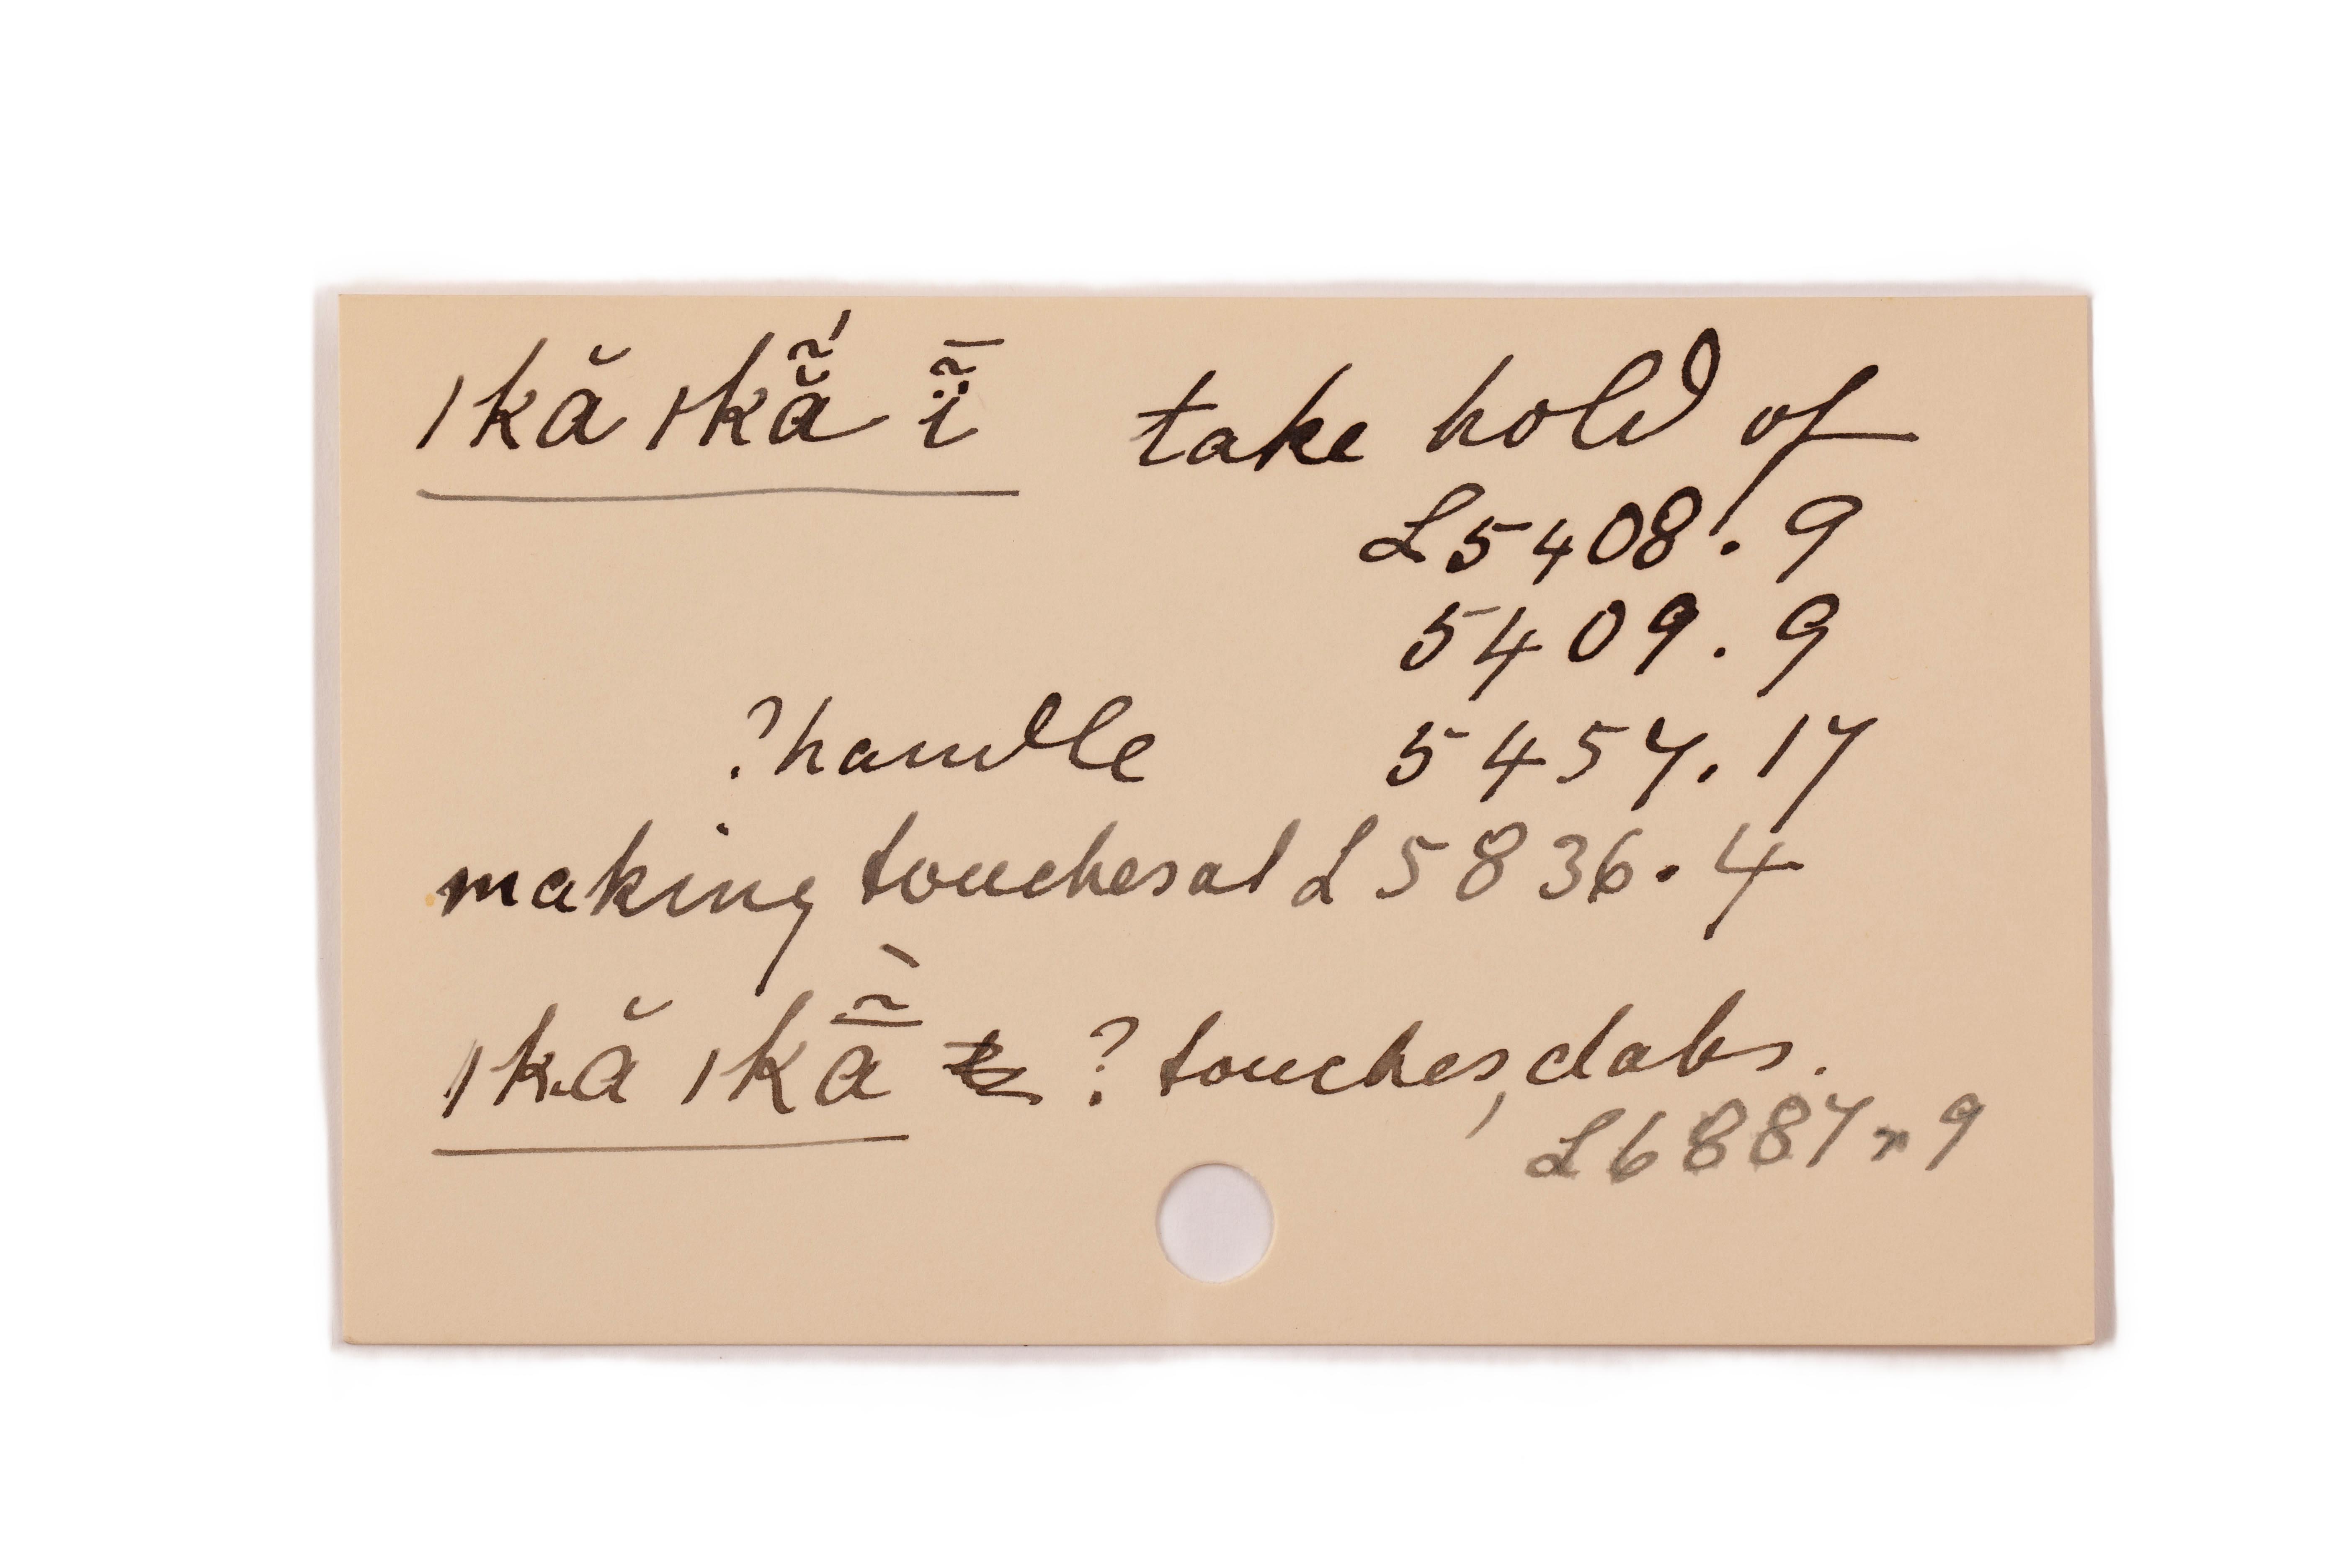 ǀkă ǀkắ̃ ï̃̄ take hold of
L5408.9
5409.9
?handle 5457.17
making touches at L5836.4
ǀkă ǀkā̃̀ ? touches, dabs.
L6887.9